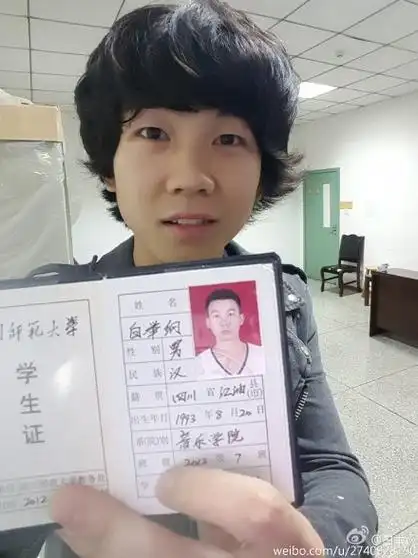 师范大学
学生证
2012
姓名
白举纲
性别 男
民族 汉
籍贯 四川 省 江油 县(市)
出生年月 1993 年 8 月 20 日
系(院)别 音乐学院
班级 2012 年 7 班
学
weibo.com/u/2740